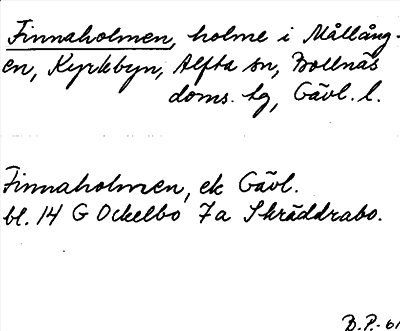 Finnaholmen, holme i Mållång-
en, Kyrkbyn, Alfta sn, Bollnäs
doms. hg, Gävl. l.
Finnaholmen, ek Gävl.
bl. 14 G Ockelbo 7a Skräddrabo.
B.P.-61